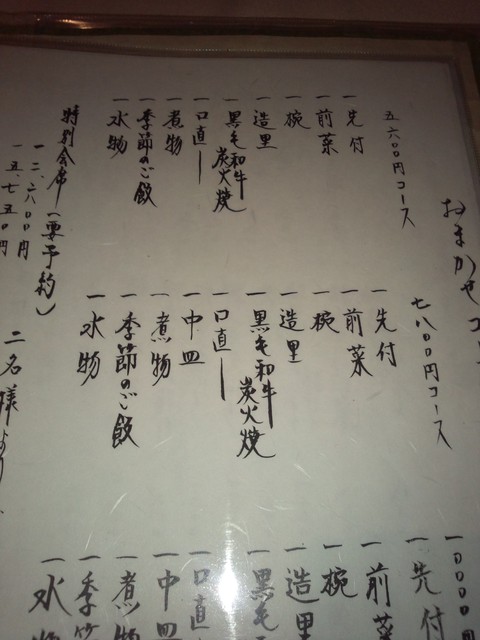 おまかせコ
五六〇〇円コース
一先付
一前菜
一椀
一造里
一黒毛和牛
炭火焼
一口直し
一煮物
一季節のご飯
一水物
七八〇〇円コース
一先付
一前菜
一椀
一造里
一黒毛和牛
炭火焼
一口直し
一中皿
一煮物
一季節のご飯
一水物
一〇〇〇〇円
一先付
一前菜
一椀
一造里
一黒毛
一口直
一中皿
一煮物
一季節
一水物
特別会席(要予約)
一二、六〇〇円
一五、七五〇円
二名様より